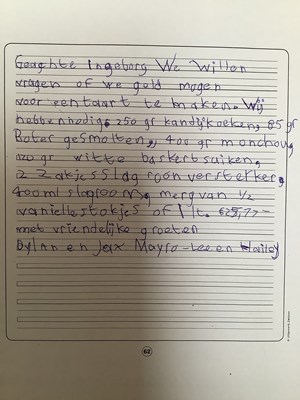 Geachte ingeborg We willen
vragen of we geld mogen
voor een taart te maken. Wij
hebben nodig, 250 gr kandijkoeken, 85 gr
Boter gesmolten, 400 gr monchou,
120 gr witte baskertsuiken,
2 zakjes slagroonversterker,
400ml slagroom, merg van 1/2
vanielle stokjes of 1 lt.
met vriendelijke groeten
en Jax Mayro-lee en Hailey
62